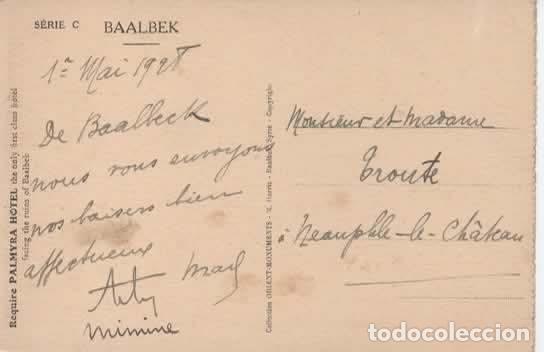 SÉRIE C BAALBEK
1er Mai 1928
De Baalbeck
nous vous envoyons
nos baisers bien
affectueux
Minine
Monsieur et Madame
Troute
à Neauphle-le-Château
Require PALMYRA HOTEL the only first class hotel
facing the ruins of Baalbek
Collection ORIENT-MONUMENTS - Baalbek, Syrie - Copyright
todocoleccion